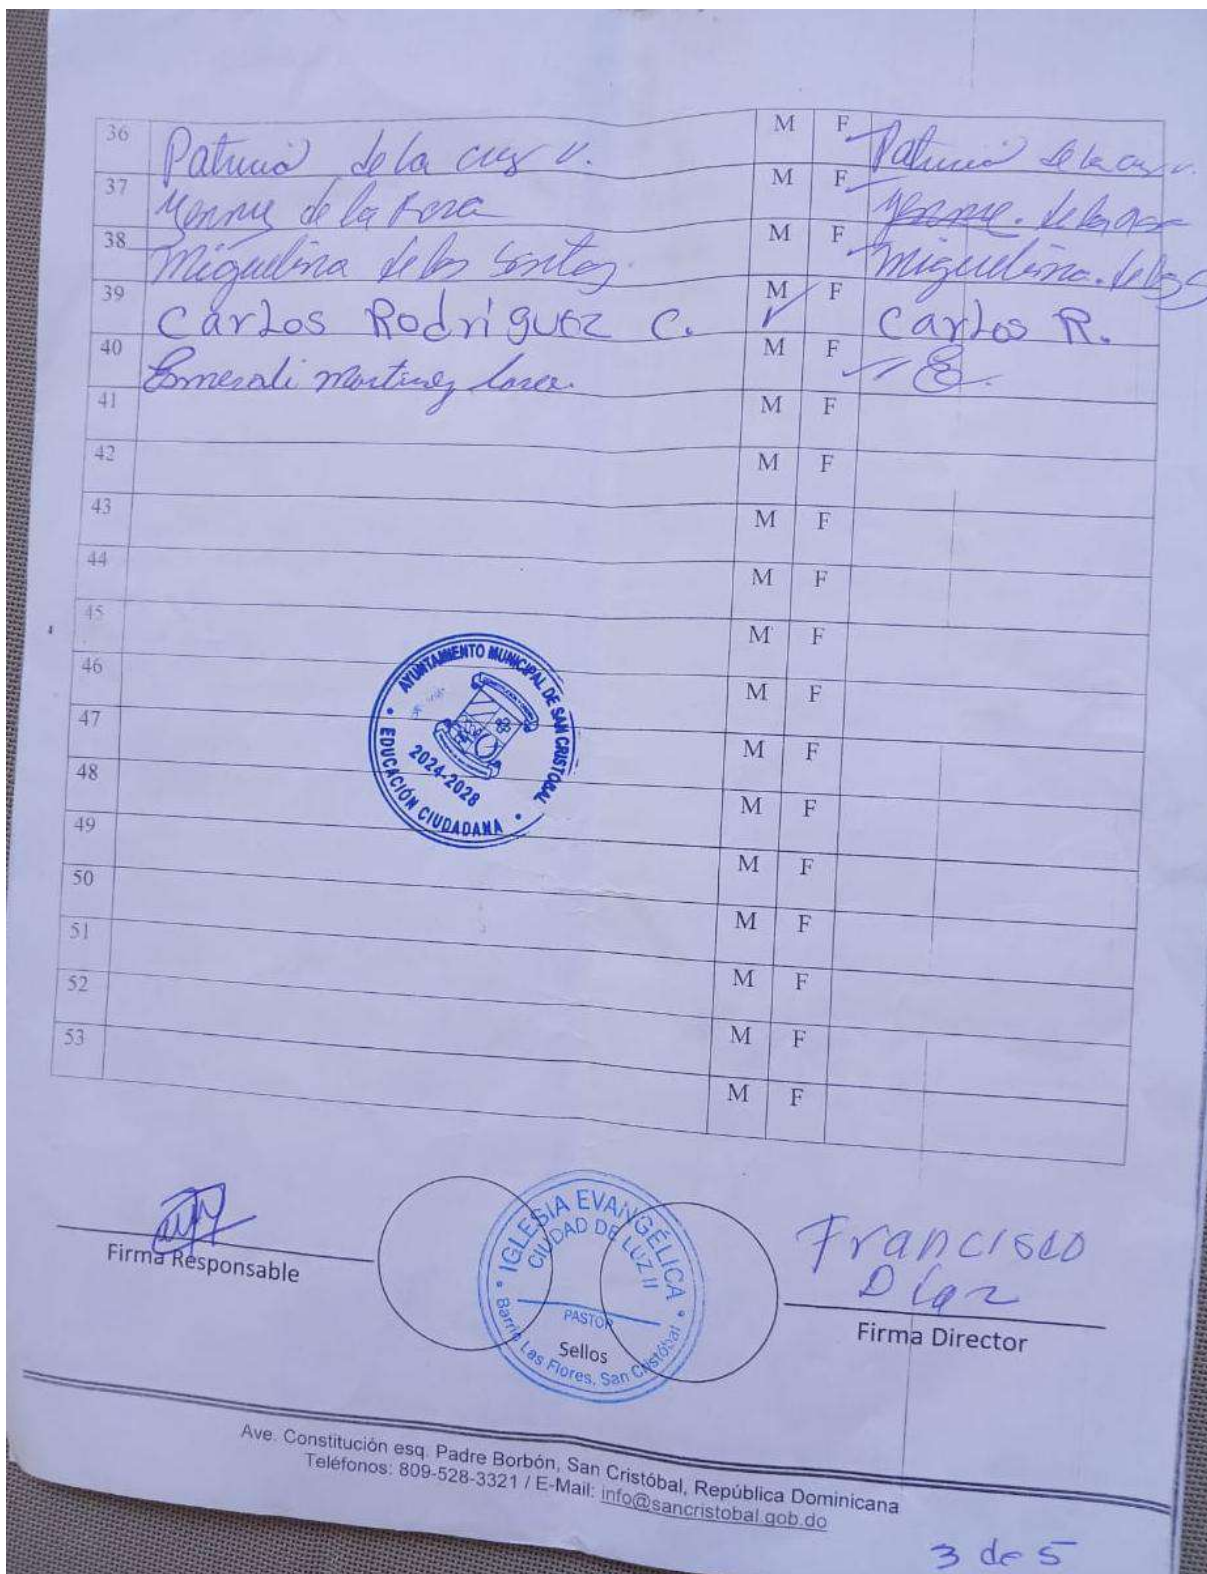 36 Patricia de la cruz v. M F Patricia de la cruz v.
37 Yennys de la Rosa M F
38 Miguelina de los Santos M F Miguelina. de los S
39 Carlos Rodriguez C. M F Carlos R.
40 Esmerali Martinez M F E.
41 M F
42 M F
43 M F
44 M F
45 M F
46 M F
47 M F
48 M F
49 M F
50 M F
51 M F
52 M F
53 M F
M F
AYUNTAMIENTO MUNICIPAL DE SAN CRISTOBAL
2024-2028
EDUCACIÓN CIUDADANA
Firma Responsable
IGLESIA EVANGÉLICA
CIUDAD DE LUZ II
PASTOR
Sellos
Barrio Las Flores, San Cristóbal
Francisco
Díaz
Firma Director
Ave. Constitución esq. Padre Borbón, San Cristóbal, República Dominicana
Teléfonos: 809-528-3321 / E-Mail: info@sancristobal.gob.do
3 de 5